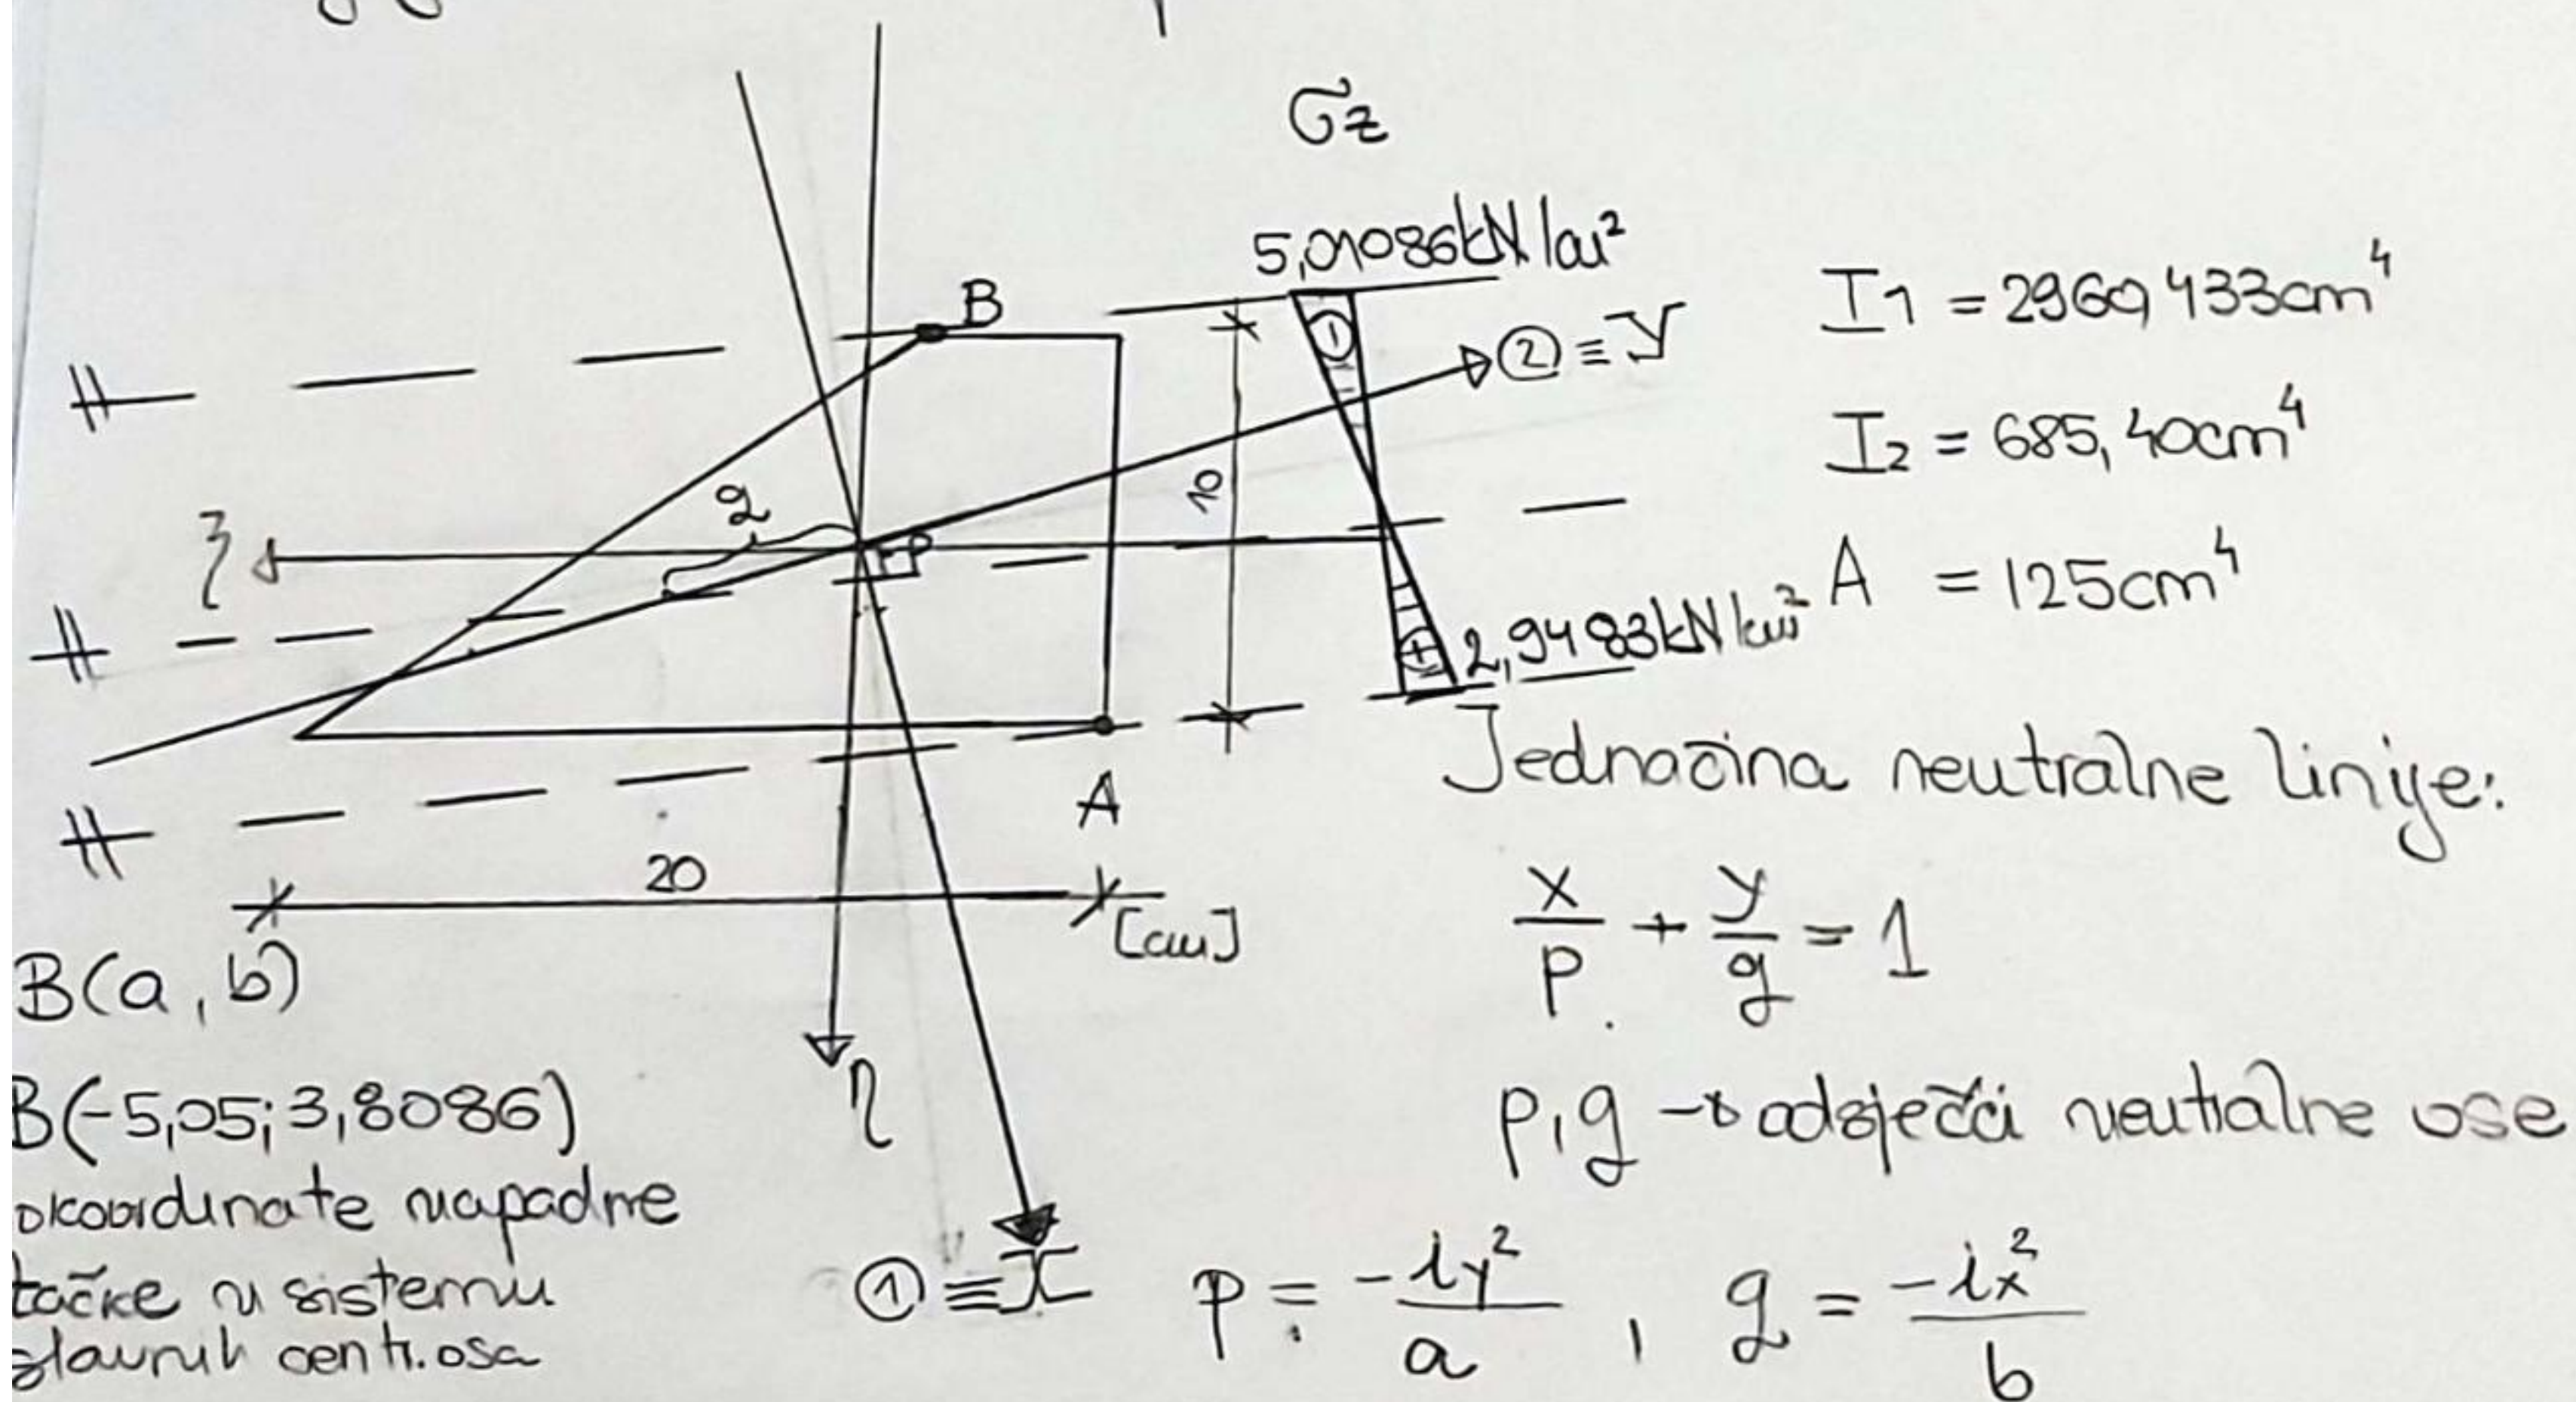 σz
5,01086kN/cm²
B
② ≡ y
I1 = 2960,433cm⁴
I2 = 685,40cm⁴
A = 125cm⁴
g
ξ
P
10
2,9483kN/cm²
A
20
[cm]
Jednačina neutralne linije:
x/p + y/g = 1
p,g → odsječci neutralne ose
B(a, b)
B(-5,05; 3,8086)
koordinate napadne
tačke u sistemu
glavnih centr. osa
η
① ≡ x
p = -iy²/a , g = -ix²/b